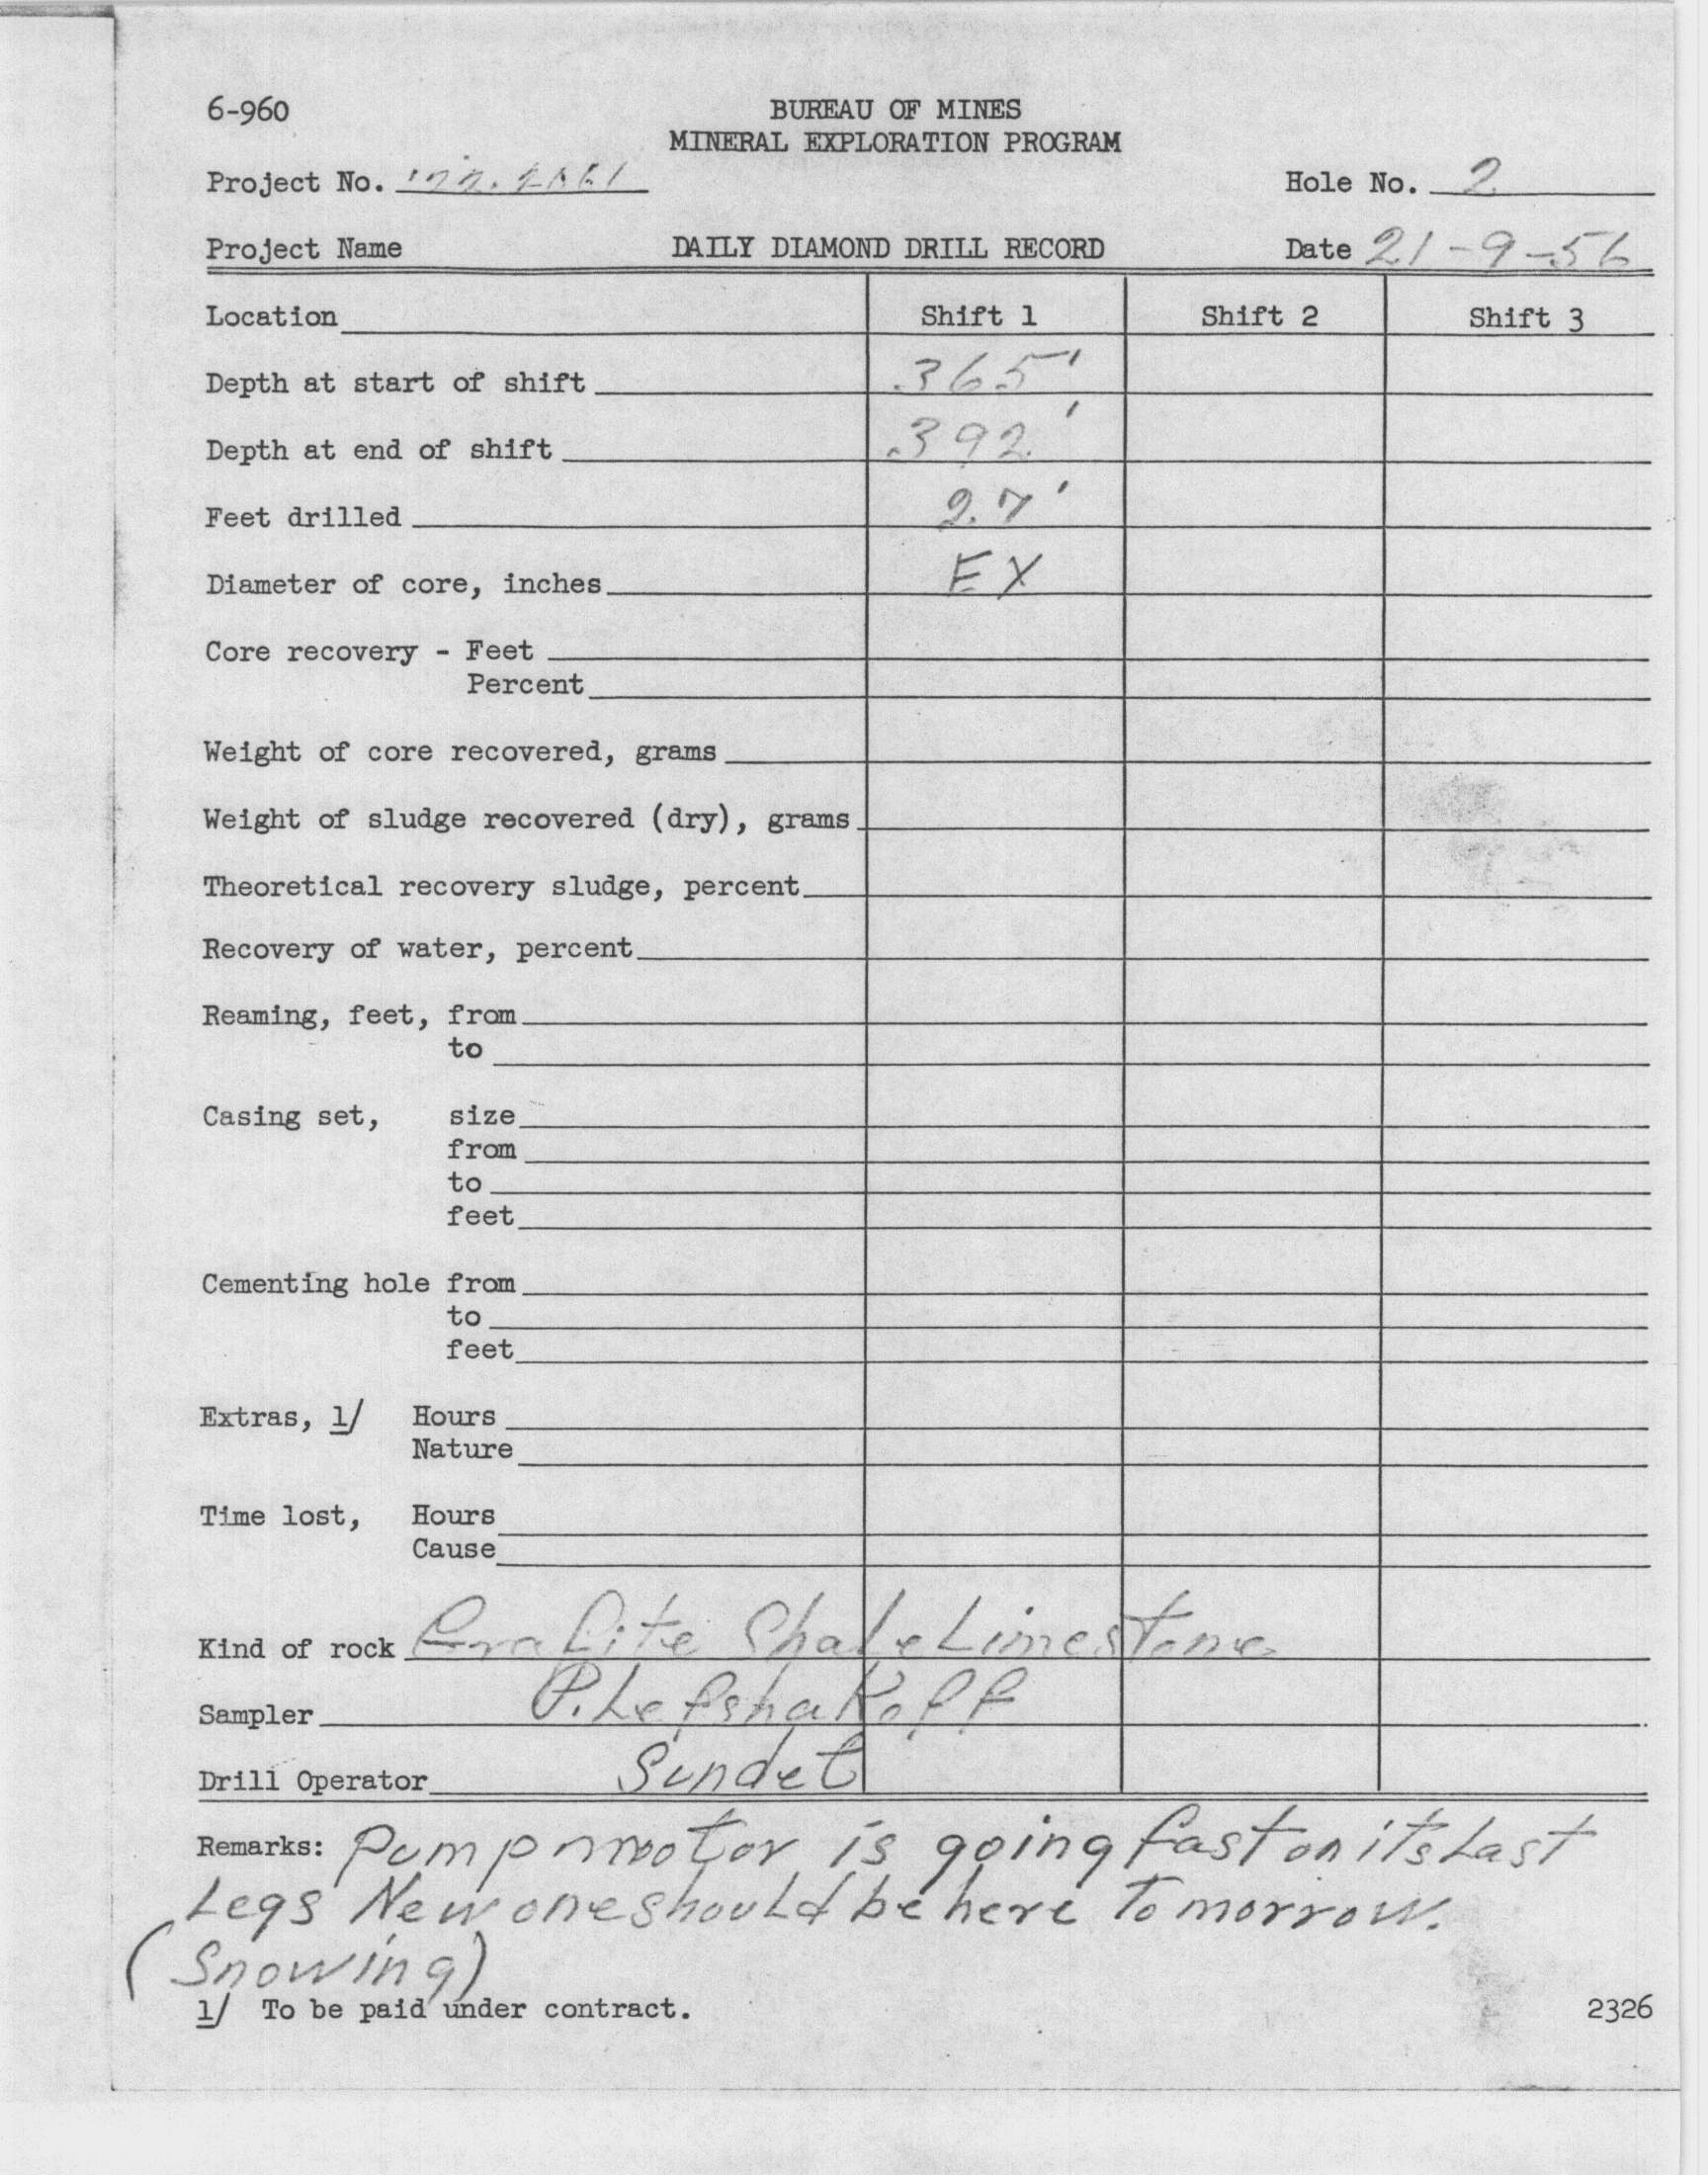 6-960 BUREAU OF MINES
MINERAL EXPLORATION PROGRAM
Project No. Hole No. 2
Project Name DAILY DIAMOND DRILL RECORD Date 21-9-56
Location Shift 1 Shift 2 Shift 3
Depth at start of shift 365'
Depth at end of shift 392'
Feet drilled 27'
Diameter of core, inches EX
Core recovery - Feet
Percent
Weight of core recovered, grams
Weight of sludge recovered (dry), grams
Theoretical recovery sludge, percent
Recovery of water, percent
Reaming, feet, from
to
Casing set, size
from
to
feet
Cementing hole from
to
feet
Extras, 1/ Hours
Nature
Time lost, Hours
Cause
Kind of rock Grafite Shale Limestone
Sampler P. Lefshakoff
Drill Operator Sundet
Remarks: Pump mootor is going fast on its Last
Legs New one should be here Tomorrow.
(Snowing)
1/ To be paid under contract.
2326